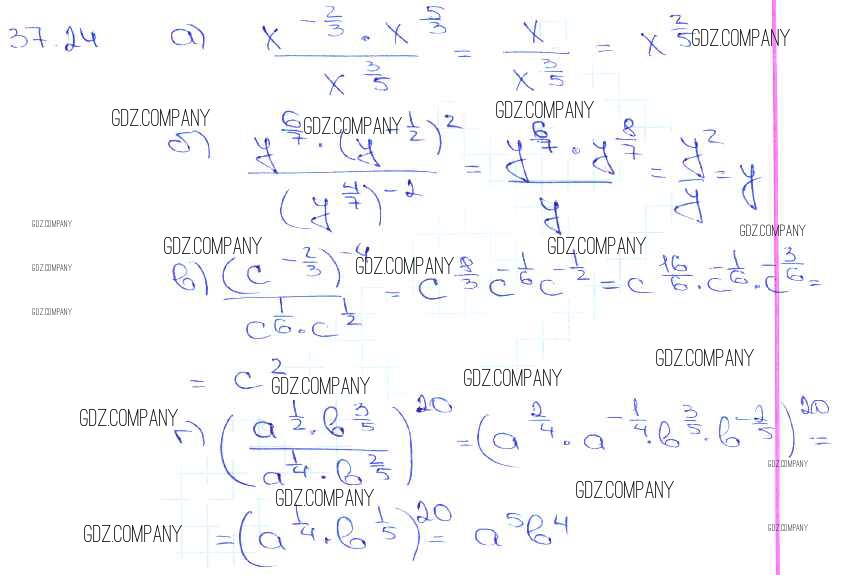 37.24 а) (x^(-2/3) · x^(5/3)) / x^(3/5) = x / x^(3/5) = x^(2/5) GDZ.COMPANY
GDZ.COMPANY GDZ.COMPANY GDZ.COMPANY
б) (y^(6/7) · (y^(-1/2))^2) / (y^(4/7))^(-2) = (y^(6/7) · y^(8/7)) / y = y^2 / y = y
GDZ.COMPANY GDZ.COMPANY
GDZ.COMPANY GDZ.COMPANY
GDZ.COMPANY GDZ.COMPANY
в) (c^(-2/3))^(-4) / (c^(1/6) · c^(1/2)) = c^(8/3) c^(-1/6) c^(-1/2) = c^(16/6) · c^(-1/6) · c^(-3/6) =
GDZ.COMPANY
= c^2
GDZ.COMPANY GDZ.COMPANY GDZ.COMPANY
GDZ.COMPANY
г) ((a^(1/2) · b^(3/5)) / (a^(1/4) · b^(2/5)))^20 = (a^(2/4) · a^(-1/4) · b^(3/5) · b^(-2/5))^20 =
GDZ.COMPANY
GDZ.COMPANY GDZ.COMPANY
GDZ.COMPANY GDZ.COMPANY
= (a^(1/4) · b^(1/5))^20 = a^5 b^4